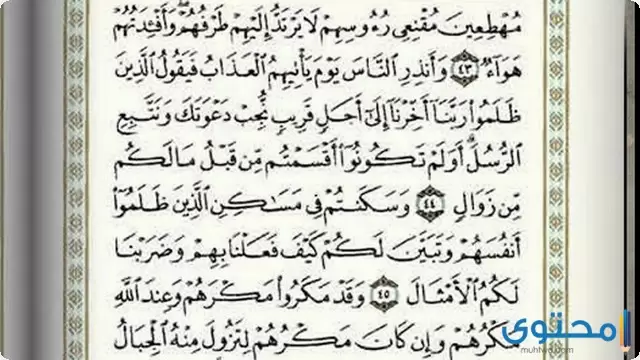 مُهْطِعِينَ مُقْنِعِي رُءُوسِهِمْ لَا يَرْتَدُّ إِلَيْهِمْ طَرْفُهُمْ ۖ وَأَفْئِدَتُهُمْ
هَوَآءٌ ٤٣ وَأَنذِرِ النَّاسَ يَوْمَ يَأْتِيهِمُ الْعَذَابُ فَيَقُولُ الَّذِينَ
ظَلَمُوا۟ رَبَّنَآ أَخِّرْنَآ إِلَىٰٓ أَجَلٍ قَرِيبٍ نُّجِبْ دَعْوَتَكَ وَنَتَّبِعِ
الرُّسُلَ ۗ أَوَلَمْ تَكُونُوٓا۟ أَقْسَمْتُم مِّن قَبْلُ مَا لَكُم
مِّن زَوَالٍ ٤٤ وَسَكَنتُمْ فِي مَسَٰكِنِ الَّذِينَ ظَلَمُوٓا۟
أَنفُسَهُمْ وَتَبَيَّنَ لَكُمْ كَيْفَ فَعَلْنَا بِهِمْ وَضَرَبْنَا
لَكُمُ الْأَمْثَالَ ٤٥ وَقَدْ مَكَرُوا۟ مَكْرَهُمْ وَعِندَ اللَّهِ
مَكْرُهُمْ وَإِن كَانَ مَكْرُهُمْ لِتَزُولَ مِنْهُ الْجِبَالُ
محتوى
muhtwa.com